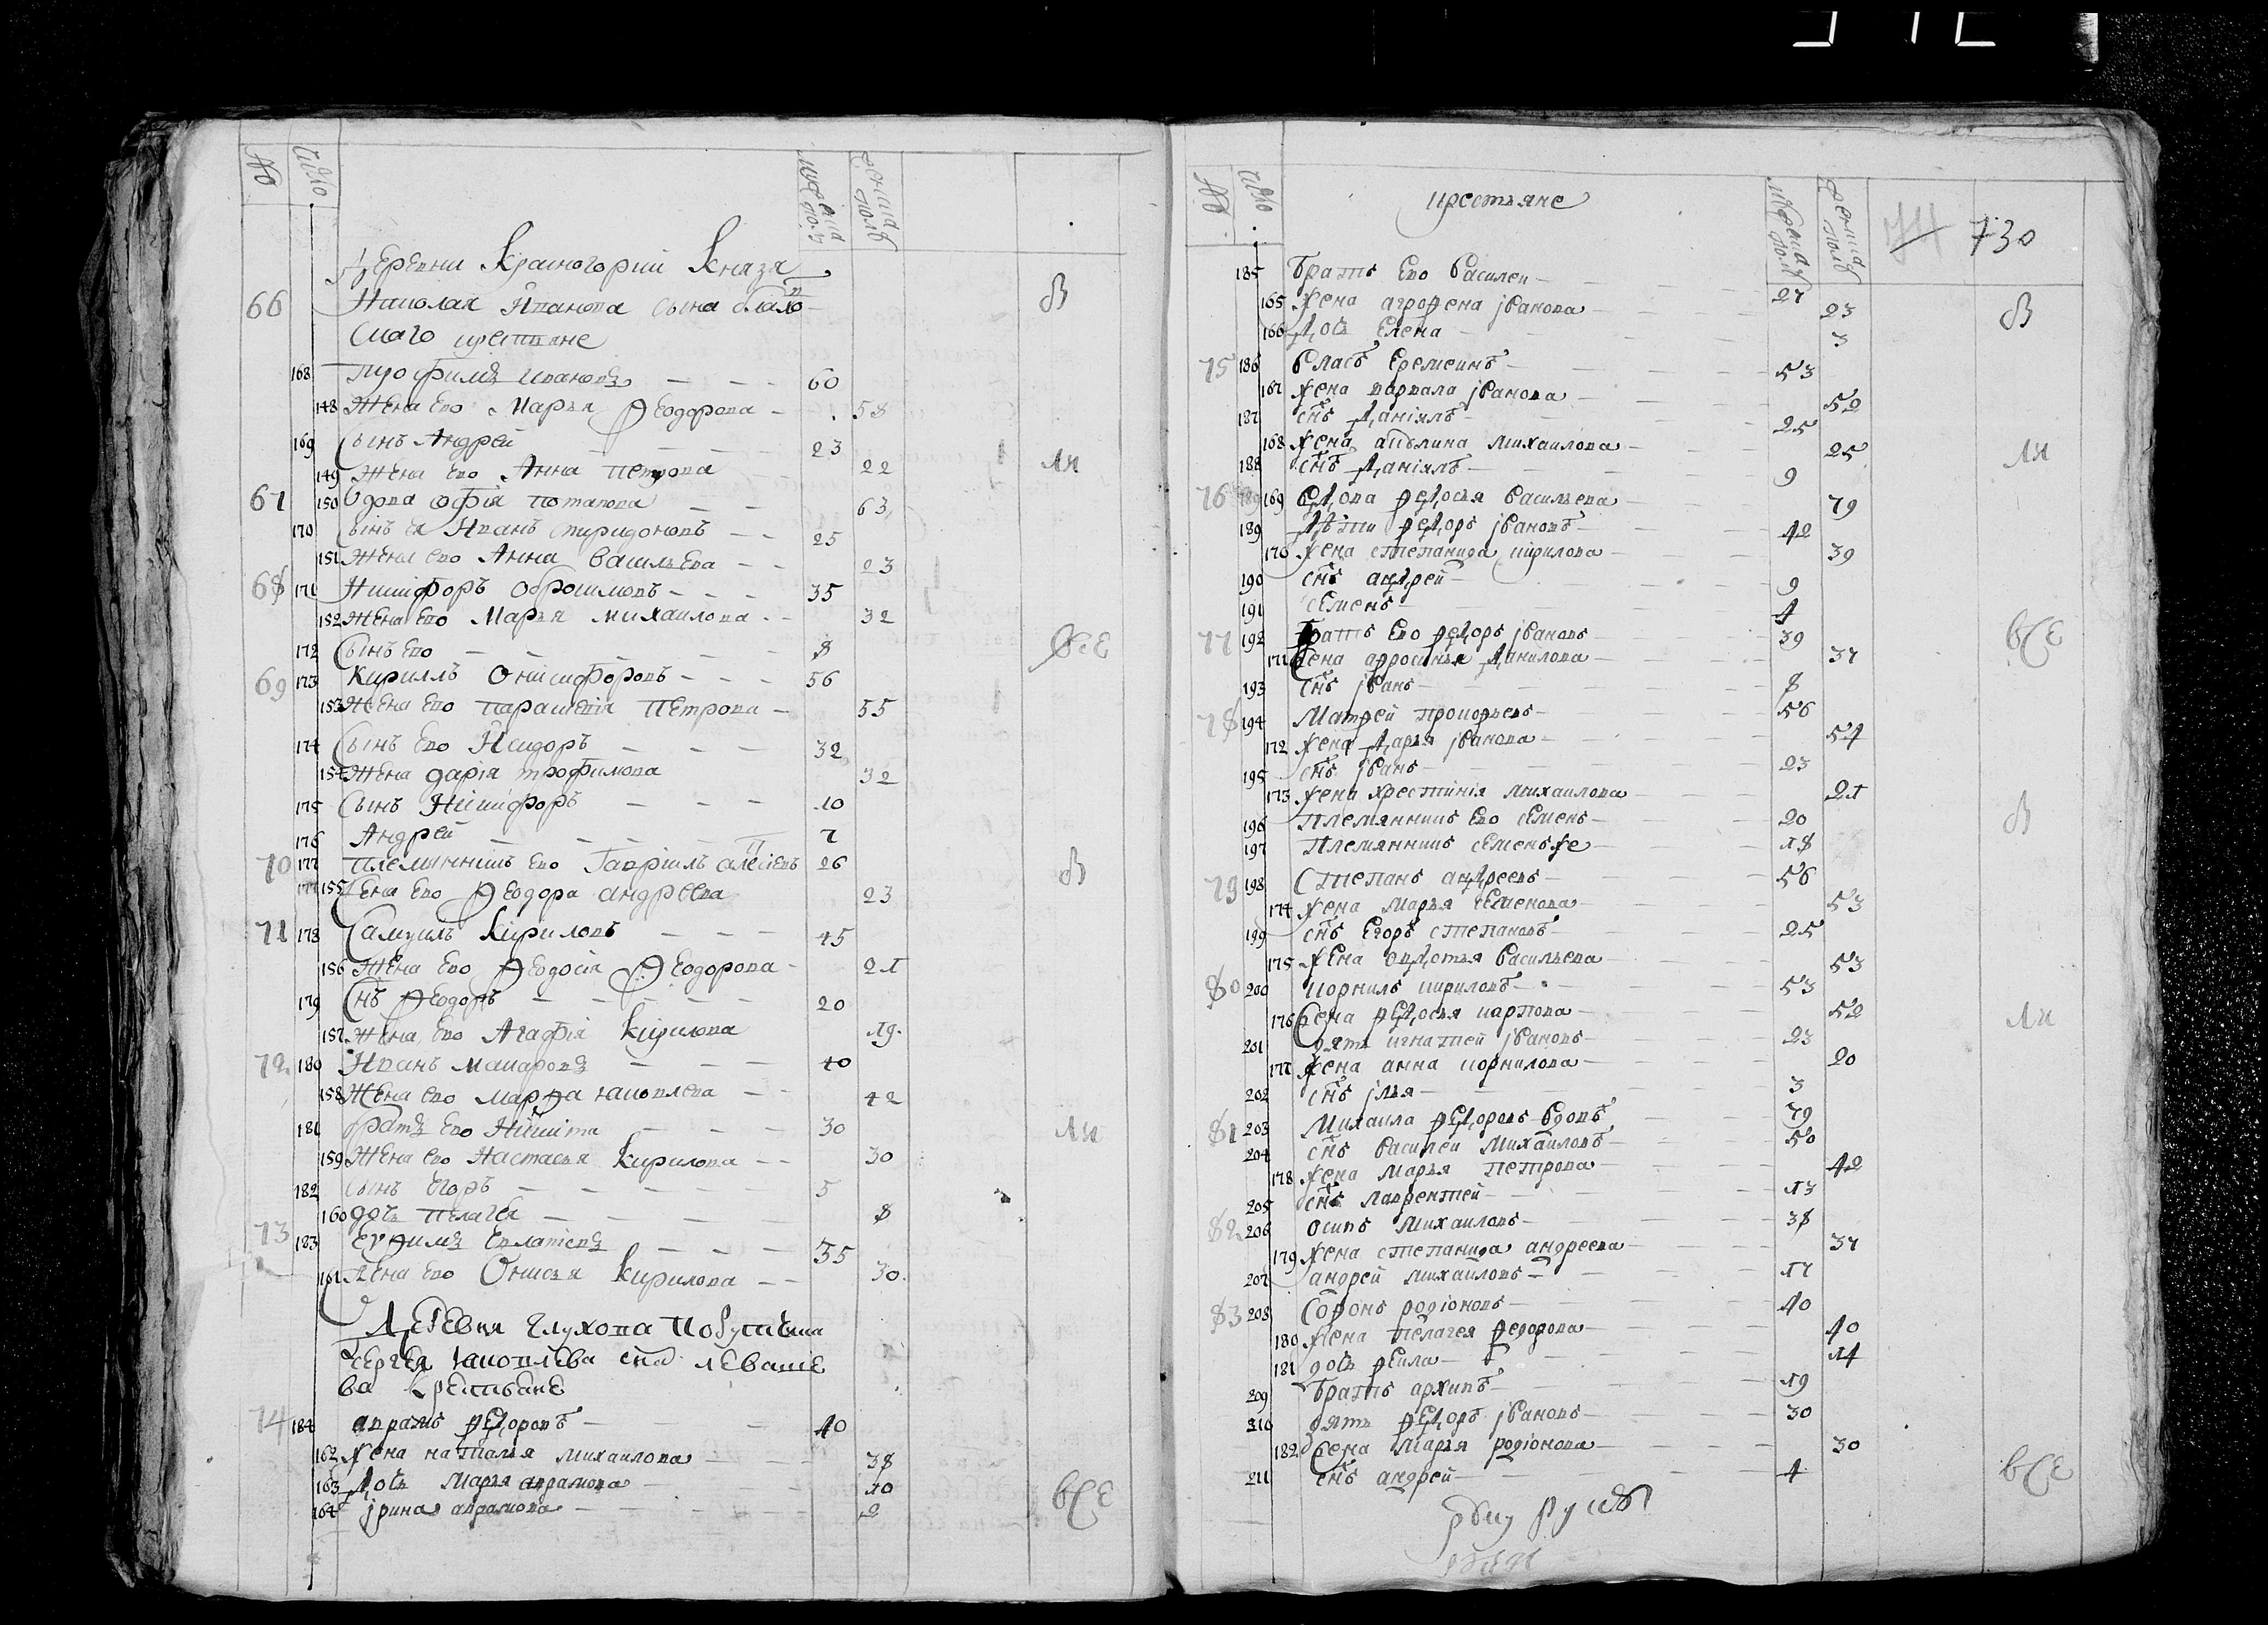 № число мужеска полу женска полу
Деревни Красногории Князя
66 Николая Иванова сына
скаго крестьяне
168 Трофимъ Ивановъ 60
148 Жена ево Марья Феодорова 58
169 Сынъ Андрей 23
149 Жена ево Анна Петрова 22
67 150 Вдова Софiя Потапова 63
170 Сынъ ея Иванъ Спиридоновъ 25
151 Жена ево Анна Васильева 23
68 171 Никифоръ Обросимовъ 35
152 Жена ево Марья Михаилова 32
172 Сынъ ево 8
69 173 Кириллъ Онисифоровъ 56
153 Жена ево Параскевiя Петрова 55
174 Сынъ ево Исидоръ 32
154 Жена Дарiя Трофимова 32
175 Сынъ Никифоръ 10
176 Андрей 7
70 177 Племянникъ ево Гаврiилъ Алексiевъ 26
155 Жена ево Феодора Андреева 23
71 178 Самуилъ Кириловъ 45
156 Жена ево Феодосiя Феодорова 21
179 Снъ Феодоръ 20
157 Жена ево Агафiя Кирилова 19
72 180 Иванъ Макаровъ 40
158 Жена ево Марфа Яковлева 42
181 Братъ ево Никита 30
159 Жена ево Настасья Кирилова 30
182 Сынъ Егоръ 5
160 дочь Пелагея 8
73 183 Ефимъ Евлатiевъ 35
161 Жена ево Онисья Кирилова 30
Деревня Глухова
Сергея Яковлева сна Леваше
ва крестьяне
74 184 аврамъ федоровъ 40
162 жена наталья михаилова 38
163 дочь Марья аврамова 10
164 iрина аврамова 2
В
ли
все
В
ли
все
№ число крестьяне мужеска полу женска полу 74 730
185 братъ ево Василеи 27
165 жена агрофена iванова 23
166 дочь Елена 3
75 186 Власъ Еремеинъ 53
167 жена варвара iванова 52
187 снъ Данiилъ 25
168 жена акулина михаилова 25
188 снъ Данiилъ 9
76 169 Вдова федосья Васильева 79
189 Дети федоръ iвановъ 42
170 жена степанида кирилова 39
190 снъ андрей 9
191 семенъ 4
77 192 Братъ ево федоръ iвановъ 39
171 жена афросинья Данилова 37
193 снъ iванъ 8
78 194 Матфей прокофьевъ 56
172 жена Дарья iванова 54
195 снъ iванъ 23
173 жена хрестинiя михаилова 21
196 племянникъ ево семенъ 20
197 племянникъ семенъ же 18
79 198 Степанъ андреевъ 56
174 жена марья семенова 53
199 снъ Егоръ степановъ 25
175 жена авдотья Васильева 53
80 200 корнилъ кириловъ 53
176 жена федосья карпова 52
201 зять игнатей iвановъ 23
177 жена анна корнилова 20
202 снъ iлья 3
81 203 Михаила федоровъ вдовъ 79
204 снъ василеи михаиловъ 50
178 жена марья петрова 42
205 снъ лаврентей 13
82 206 осипъ михаиловъ 38
179 жена степанида андреева 37
207 андрей михаиловъ 17
83 208 Софонъ родiоновъ 40
180 жена пелагея федорова 40
181 дочь фекла 14
209 братъ архипъ 19
210 зять федоръ iвановъ 30
182 жена марья родiонова 30
211 снъ андрей 4
В
ли
все
В
ли
все